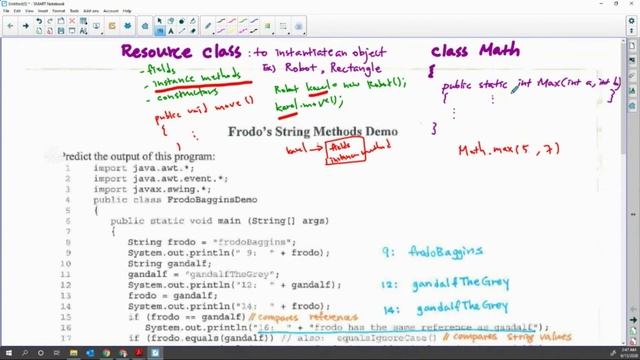 Untitled(5) * - SMART Notebook
Resource class : to instantiate an object
- fields
- instance methods
- constructors
Ex) Robot, Rectangle
Robot karel = new Robot();
karel.move();
public void move()
{
:
}
karel → fields
instance method
class Math
{
public static int Max(int a, int b)
{ : }
:
}
Math.max(5, 7)
Frodo's String Methods Demo
Predict the output of this program:
1 import java.awt.*;
2 import java.awt.event.*;
3 import javax.swing.*;
4 public class FrodoBagginsDemo
5 {
6 public static void main (String[] args)
7 {
8 String frodo = "frodoBaggins";
9 System.out.println(" 9: " + frodo);
10 String gandalf;
11 gandalf = "gandalfTheGrey";
12 System.out.println("12: " + gandalf);
13 frodo = gandalf;
14 System.out.println("14: " + gandalf);
15 if (frodo == gandalf) // compares references
16 System.out.println("16: " + "frodo has the same reference as gandalf");
17 if (frodo.equals(gandalf)) // also: equalsIgnoreCase() // compares string values
9: frodoBaggins
12: gandalfTheGrey
14: gandalfTheGrey